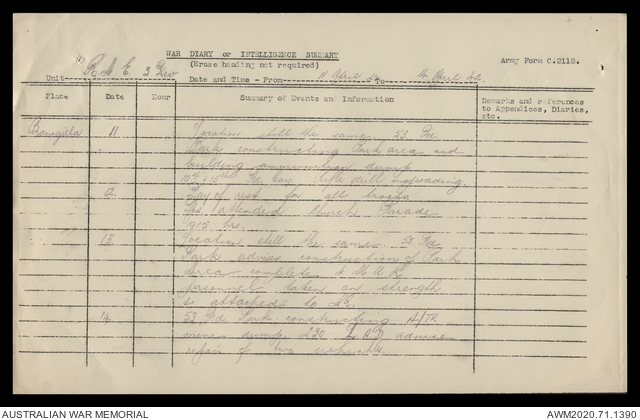 WAR DIARY or INTELLIGENCE SUMMARY
(Erase heading not required)
Army Form C.2118.
Unit R.A.E. 3 Div
Date and Time - From 11 April 42 To 14 April 42.
Place Date Hour Summary of Events and Information Remarks and references to Appendices, Diaries, etc.
11 Location still the same. 53 Fd.
Park constructing Park area and
building ammunition dump
10th & 15th Fd. Coy Rifle drill mapreading.
12. Day of rest for all troops
attended Church Parade
1915 hrs.
13 Location still the same. 53 Fd.
Park advise construction of Park
area complete.
personnel taken on strength
as attached to
14. 53 Fd. Park constructing A/TK
mines dump. advise
repair of two vehicles.
AUSTRALIAN WAR MEMORIAL
AWM2020.71.1390